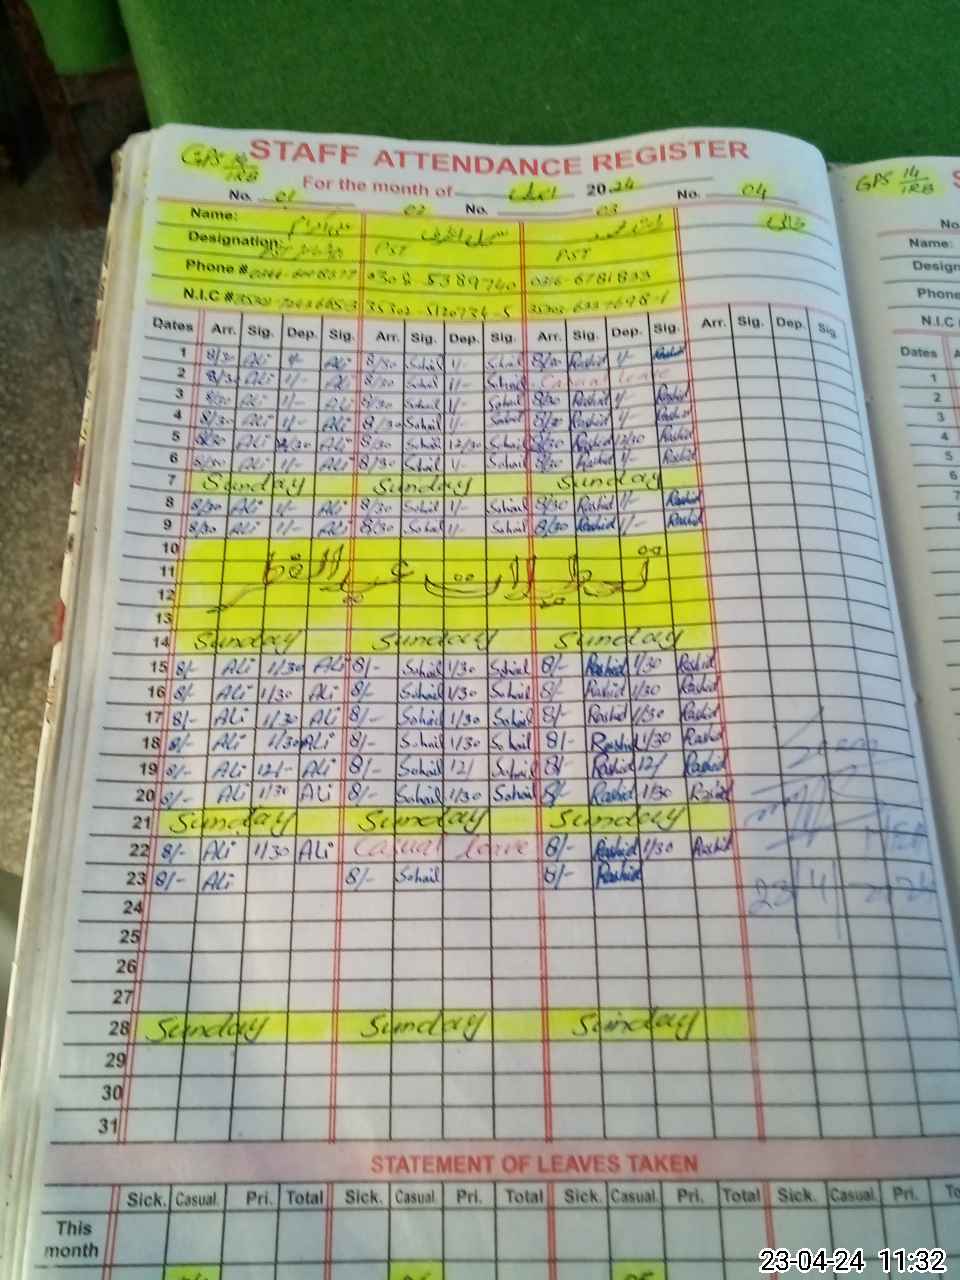 GPS 14/1RB STAFF ATTENDANCE REGISTER GPS 14/1RB
For the month of اپریل 2024
No. 01 02 No. 03 No. 04
Name: سہیل اشرف خالی Name:
Designation: PST PST
Phone # 0308-5389740 0316-6781833 Phone
N.I.C # N.I.C
Dates Arr. Sig. Dep. Sig. Arr. Sig. Dep. Sig. Arr. Sig. Dep. Sig. Arr. Sig. Dep. Sig. Dates
1 8/30 Ali 1/- Ali 8/30 Sohail 1/- Sohail 8/30 Rashid 1/- Rashid 1
2 8/30 Ali 1/- Ali 8/30 Sohail 1/- Sohail Casual leave 2
3 8/30 Ali 1/- Ali 8/30 Sohail 1/- Sohail 8/30 Rashid 1/- Rashid 3
4 8/30 Ali 1/- Ali 8/30 Sohail 1/- Sohail 8/30 Rashid 1/- Rashid 4
5 8/30 Ali 12/30 Ali 8/30 Sohail 12/30 Sohail 8/30 Rashid 12/30 Rashid 5
6 8/30 Ali 1/- Ali 8/30 Sohail 1/- Sohail 8/30 Rashid 1/- Rashid 6
7 Sunday Sunday Sunday 7
8 8/30 Ali 1/- Ali 8/30 Sohail 1/- Sohail 8/30 Rashid 1/- Rashid 8
9 8/30 Ali 1/- Ali 8/30 Sohail 1/- Sohail 8/30 Rashid 1/- Rashid 9
10
11 تعطیلات عید الفطر
12
13
14 Sunday Sunday Sunday
15 8/- Ali 1/30 Ali 8/- Sohail 1/30 Sohail 8/- Rashid 1/30 Rashid
16 8/- Ali 1/30 Ali 8/- Sohail 1/30 Sohail 8/- Rashid 1/30 Rashid
17 8/- Ali 1/30 Ali 8/- Sohail 1/30 Sohail 8/- Rashid 1/30 Rashid
18 8/- Ali 1/30 Ali 8/- Sohail 1/30 Sohail 8/- Rashid 1/30 Rashid
19 8/- Ali 12/- Ali 8/- Sohail 12/ Sohail 8/- Rashid 12/ Rashid
20 8/- Ali 1/30 Ali 8/- Sohail 1/30 Sohail 8/- Rashid 1/30 Rashid
21 Sunday Sunday Sunday
22 8/- Ali 1/30 Ali Casual leave 8/- Rashid 1/30 Rashid
23 8/- Ali 8/- Sohail 8/- Rashid 23/4/2024
24
25
26
27
28 Sunday Sunday Sunday
29
30
31
STATEMENT OF LEAVES TAKEN
Sick. Casual. Pri. Total Sick. Casual Pri. Total Sick. Casual. Pri. Total Sick. Casual. Pri.
This month
23-04-24 11:32